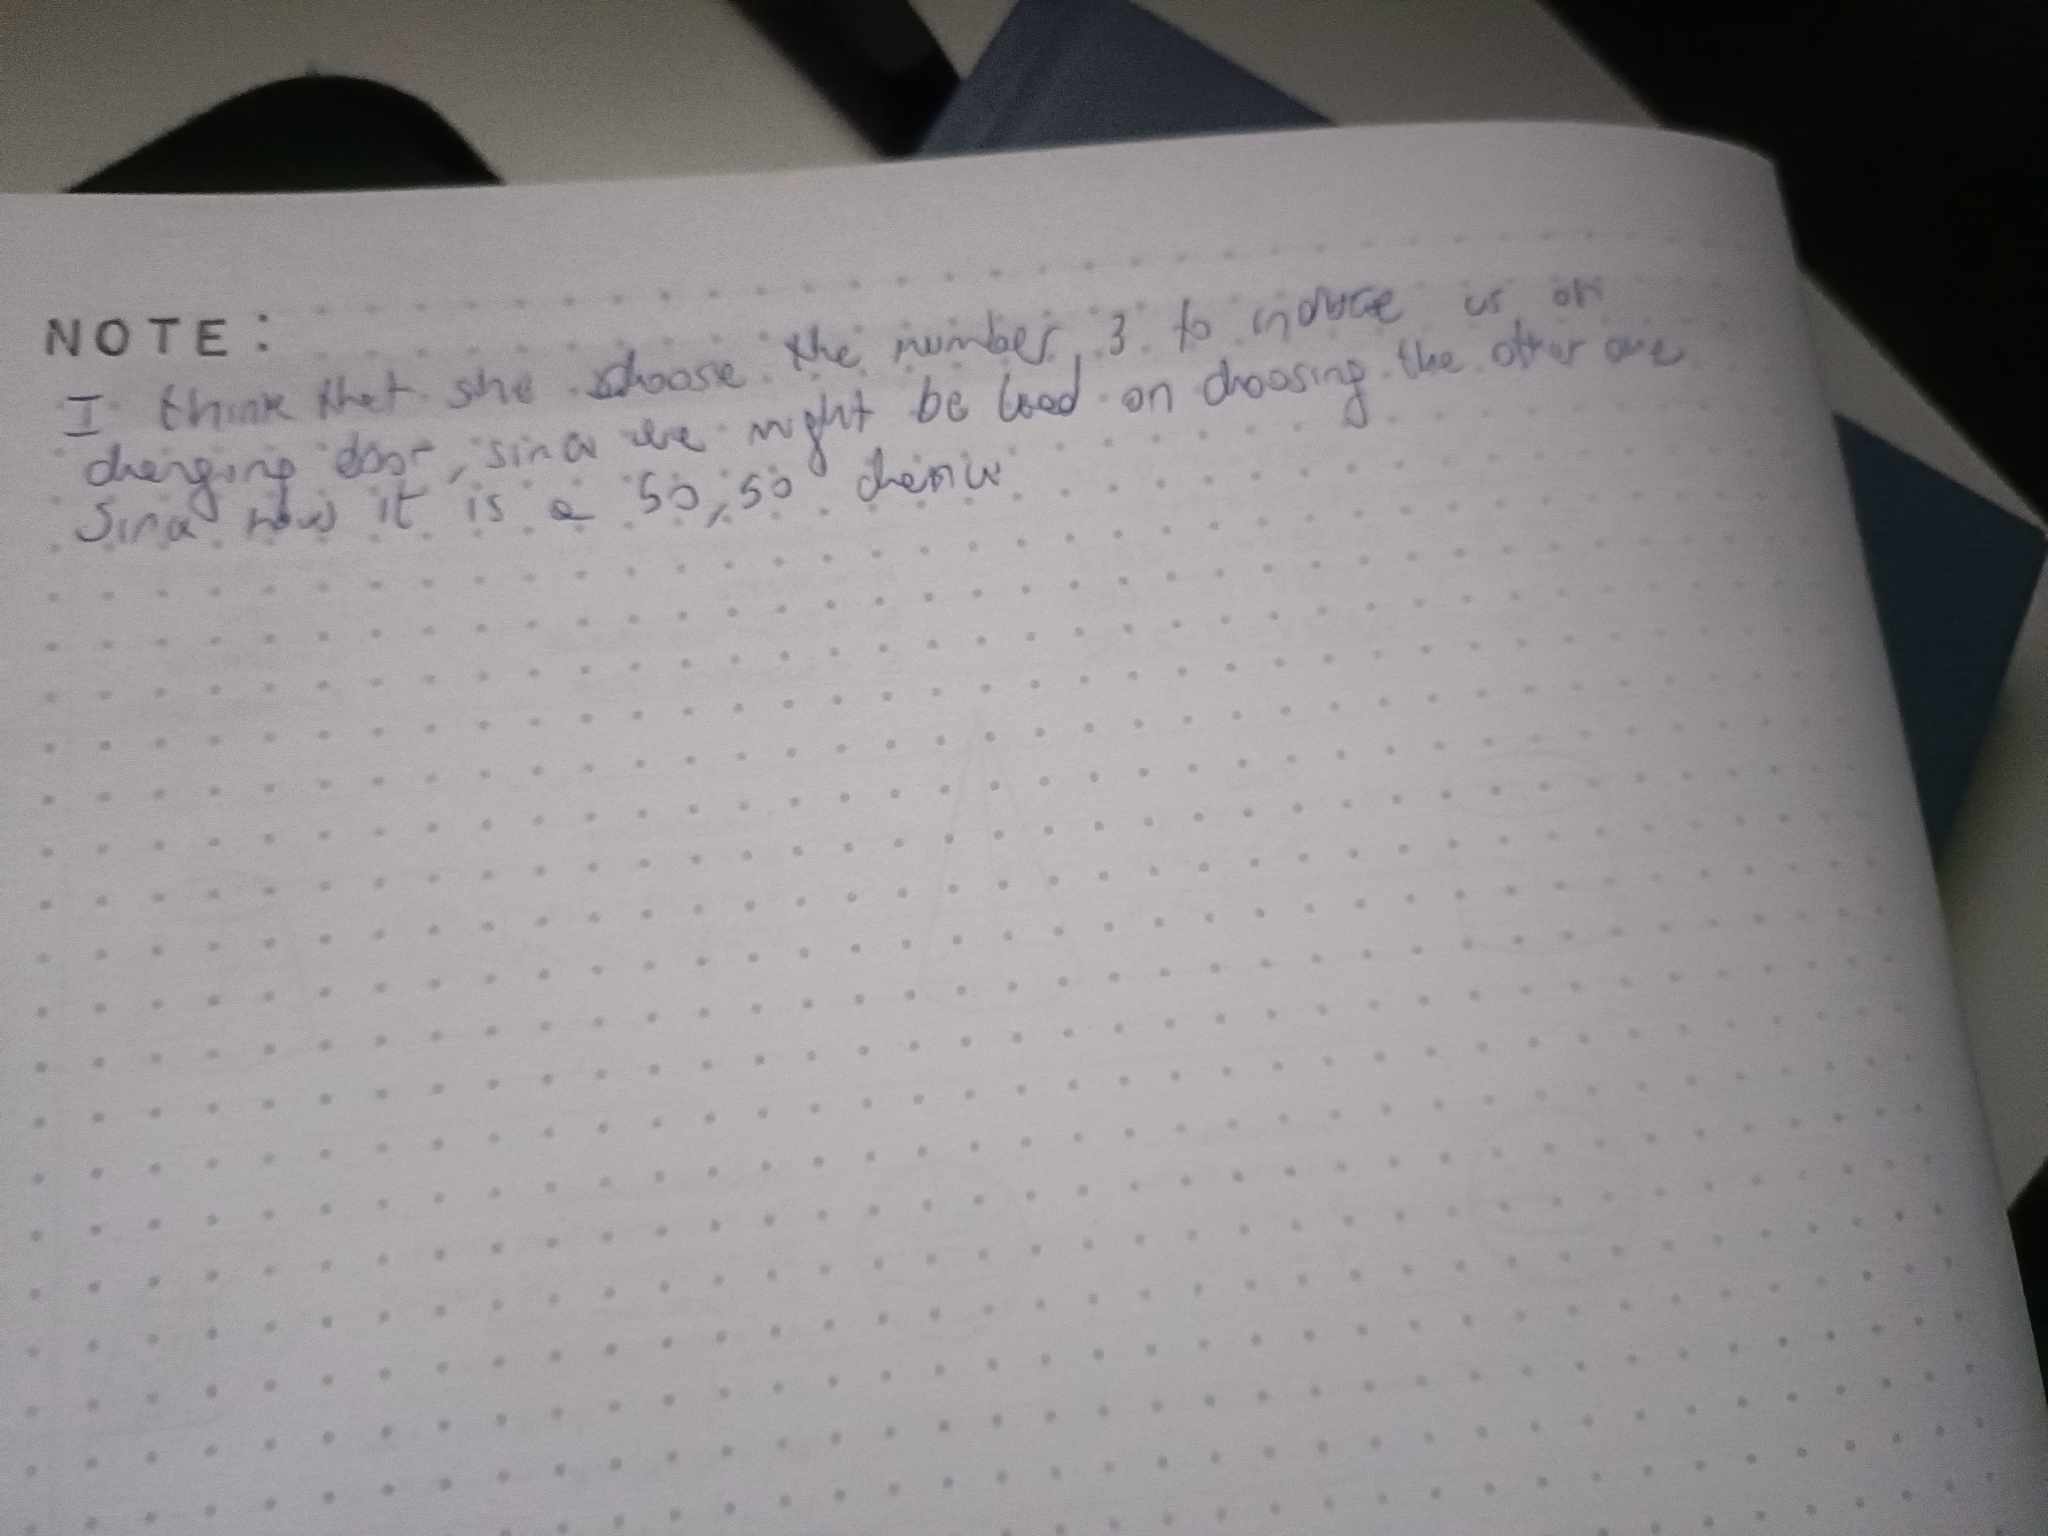 NOTE:
I think that she choose the number 3 to induce us on
changing door, since we might be load on choosing the other one
Since now it is a 50,50 chance